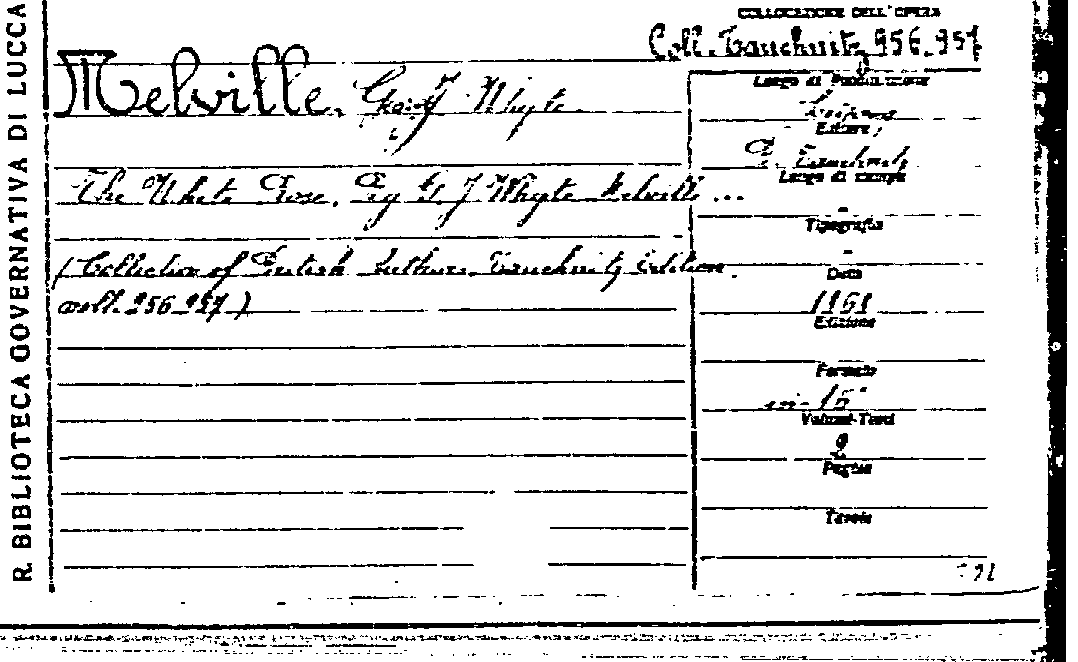 R. BIBLIOTECA GOVERNATIVA DI LUCCA
COLLOCAZIONE DELL'OPERA
Coll. Tauchnitz 956.957
Melville, Whyte
The White Rose. By G. J Whyte Melville ...
(Collection of British Authors. Tauchnitz Edition.
voll. 956.957)
Luogo di Pubblicazione
Editore
B. Tauchnitz
Luogo di stampa
-
Tipografia
-
Data
1868
Edizione
Formato
in-16°
Volumi-Tomi
2
Pagine
Tavole